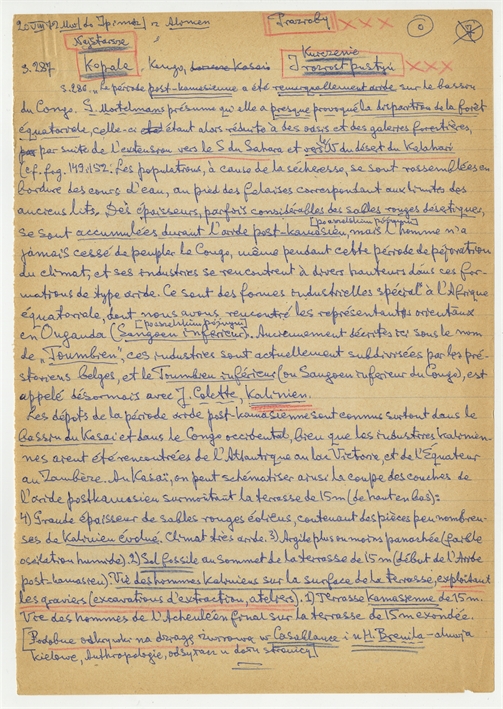 Prazroby
Najstarsze
Kopale, Kongo, Kasai
Kurczenie
I rozrost pustyń
s. 287
s. 286. "La période post-kamasienne a été remarquablement aride sur le bassin
du Congo. G. Mortelmans présume qu'elle a presque provoqué la disparition de la forêt
équatoriale, celle-ci étant alors réduite à des oasis et des galeries forestières,
par suite de l'extension vers le S du Sahara et vers W du désert du Kalahari
(cf. fig. 149:152. Les populations, à cause de la sécheresse, se sont rassemblées en
bordure des cours d'eau, au pied des falaises correspondant aux limites des
anciens lits. Des épaisseurs, parfois considérables des sables rouges désertiques,
se sont accumulées durant l'aride post-kamasien, mais l'homme n'a
jamais cessé de peupler le Congo, même pendant cette période de péjoration
du climat, et ses industries se rencontrent à divers hauteurs dans ces for-
mations de type aride. Ce sont des formes industrielles spécial à l'Afrique
équatoriale, dont nous avons rencontré les représentants orientaux
en Ouganda (Sangoen inférieur). Anciennement décrites ici sous le nom
de "Toumbien", ces industries sont actuellement subdivisées par les pré-
historiens belges, et le Toumbien inférieur (ou Sangoen inférieur du Congo), est
appelé désormais avec J. Colette, Kalinien.
Les dépots de la période aride post-kamasienne sont connus surtout dans le
bassin du Kasai et dans le Congo occidental, bien que les industries kalinien-
nes aient été rencontrées de l'Atlantique au lac Victoria, et de l'Équateur
au Zambèze. Au Kasaï, on peut schématiser ainsi la coupe des couches de
l'aride postkamasien surmontant la terrasse de 15 m (de haut en bas):
4) Grande épaisseur de sables rouges éoliens, contenant des pièces peu nombreu-
ses de Kalinien évolué. Climat très aride. 3) Argile plus ou moins panachée (faible
oscilation humide). 2) Sol fossile au sommet de la terrasse de 15 m (début de l'Aride
post-kamasien). Vie des hommes Kaliniens sur la surface de la terrasse, exploitant
les graviers (excavations d'extraction, ateliers). 1) Terrasse kamasienne de 15 m.
Vie des hommes de l'Acheuléen final sur la terrasse de 15 m exondée.
[Podobne odkrywki na żwirową w Casablance i u H. Breuila
Anthropologie,